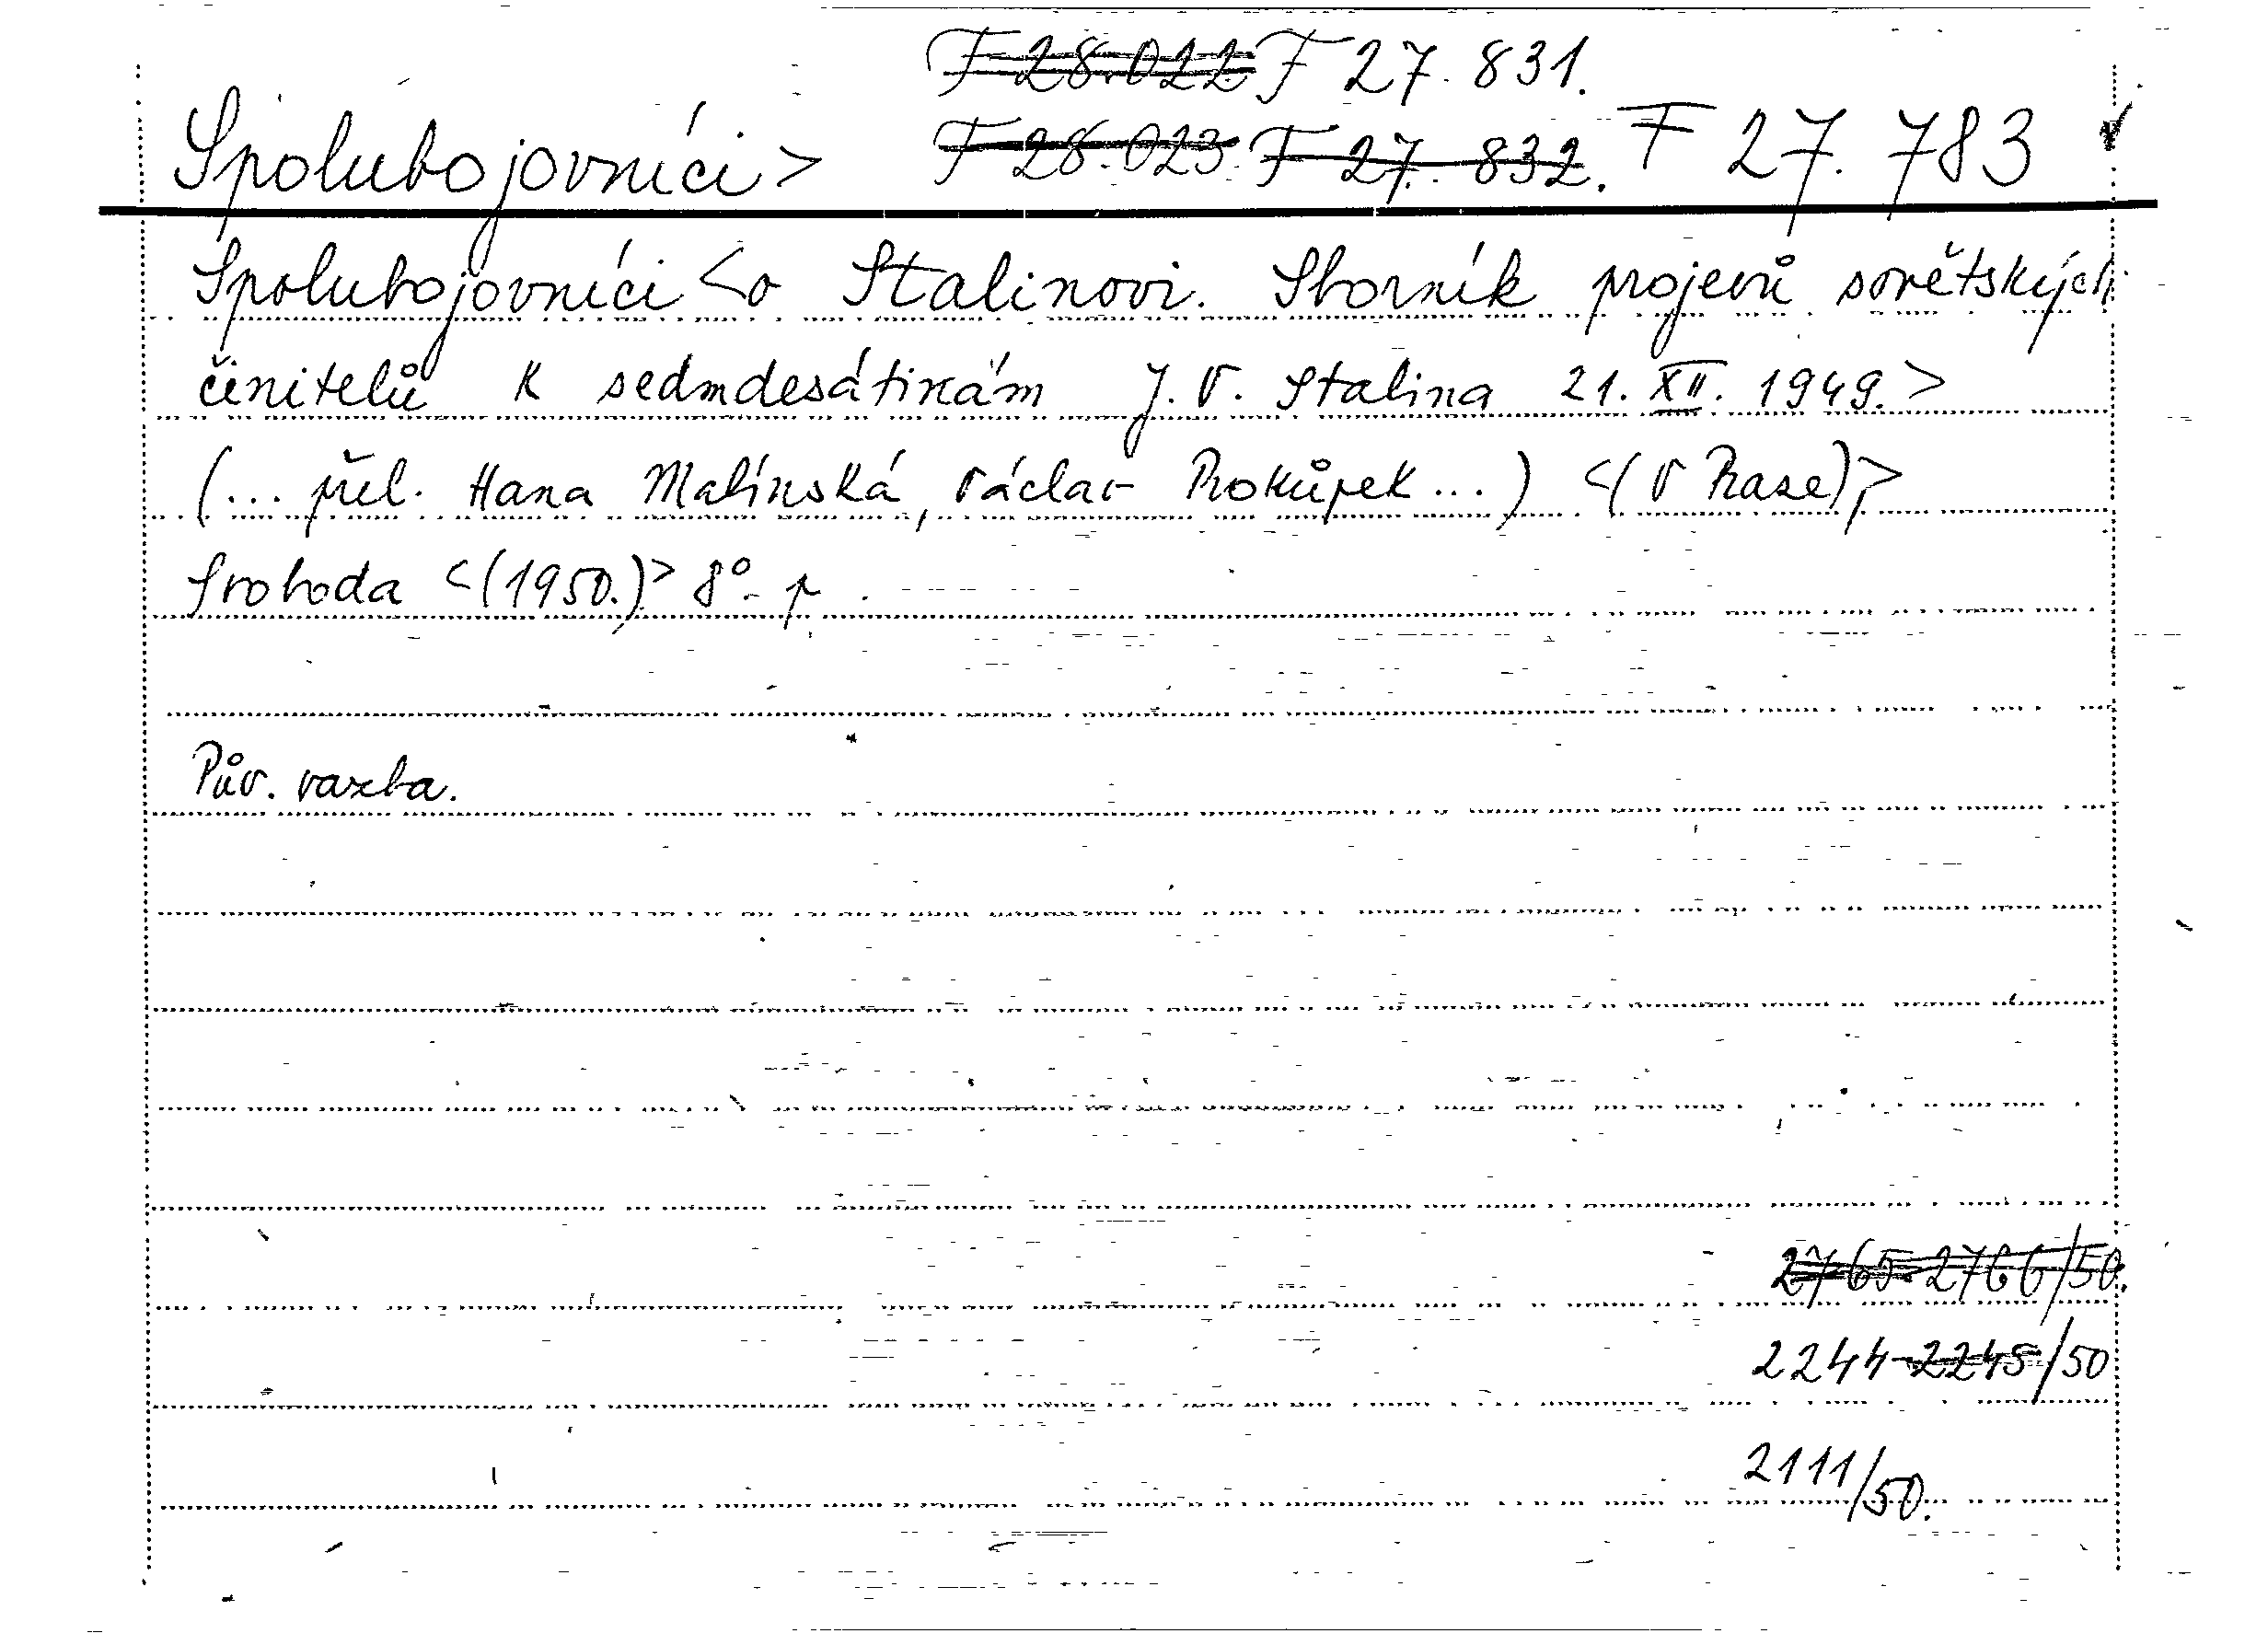 F 28.022 F 27.831.
Spolubojovníci> F 28.023. F 27.832. F 27.783
Spolubojovníci <o Stalinovi. Sborník projevů sovětských
činitelů k sedmdesátinám J. V. Stalina 21. XII. 1949.>
(... přel. Hana Malínská, Václav Prokůpek ...) <(V Praze),>
Svoboda <(1950.)> 8°. p
Pův. vazba.
2765-2766/50.
2244-2245/50
2111/50.